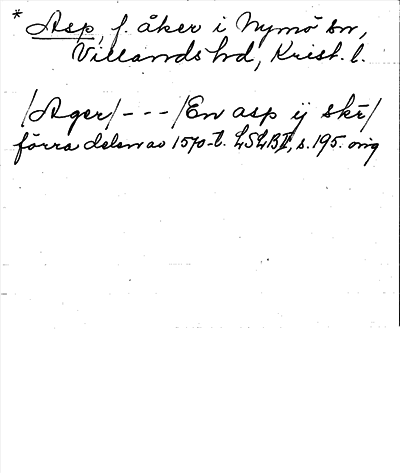 * Asp, f. åker i Nymö sn,
Villands hd, Krist. l.
/Ager/ - - - /En asp ij skr/
förra delen av 1570-t. LSLBII, s. 195. orig